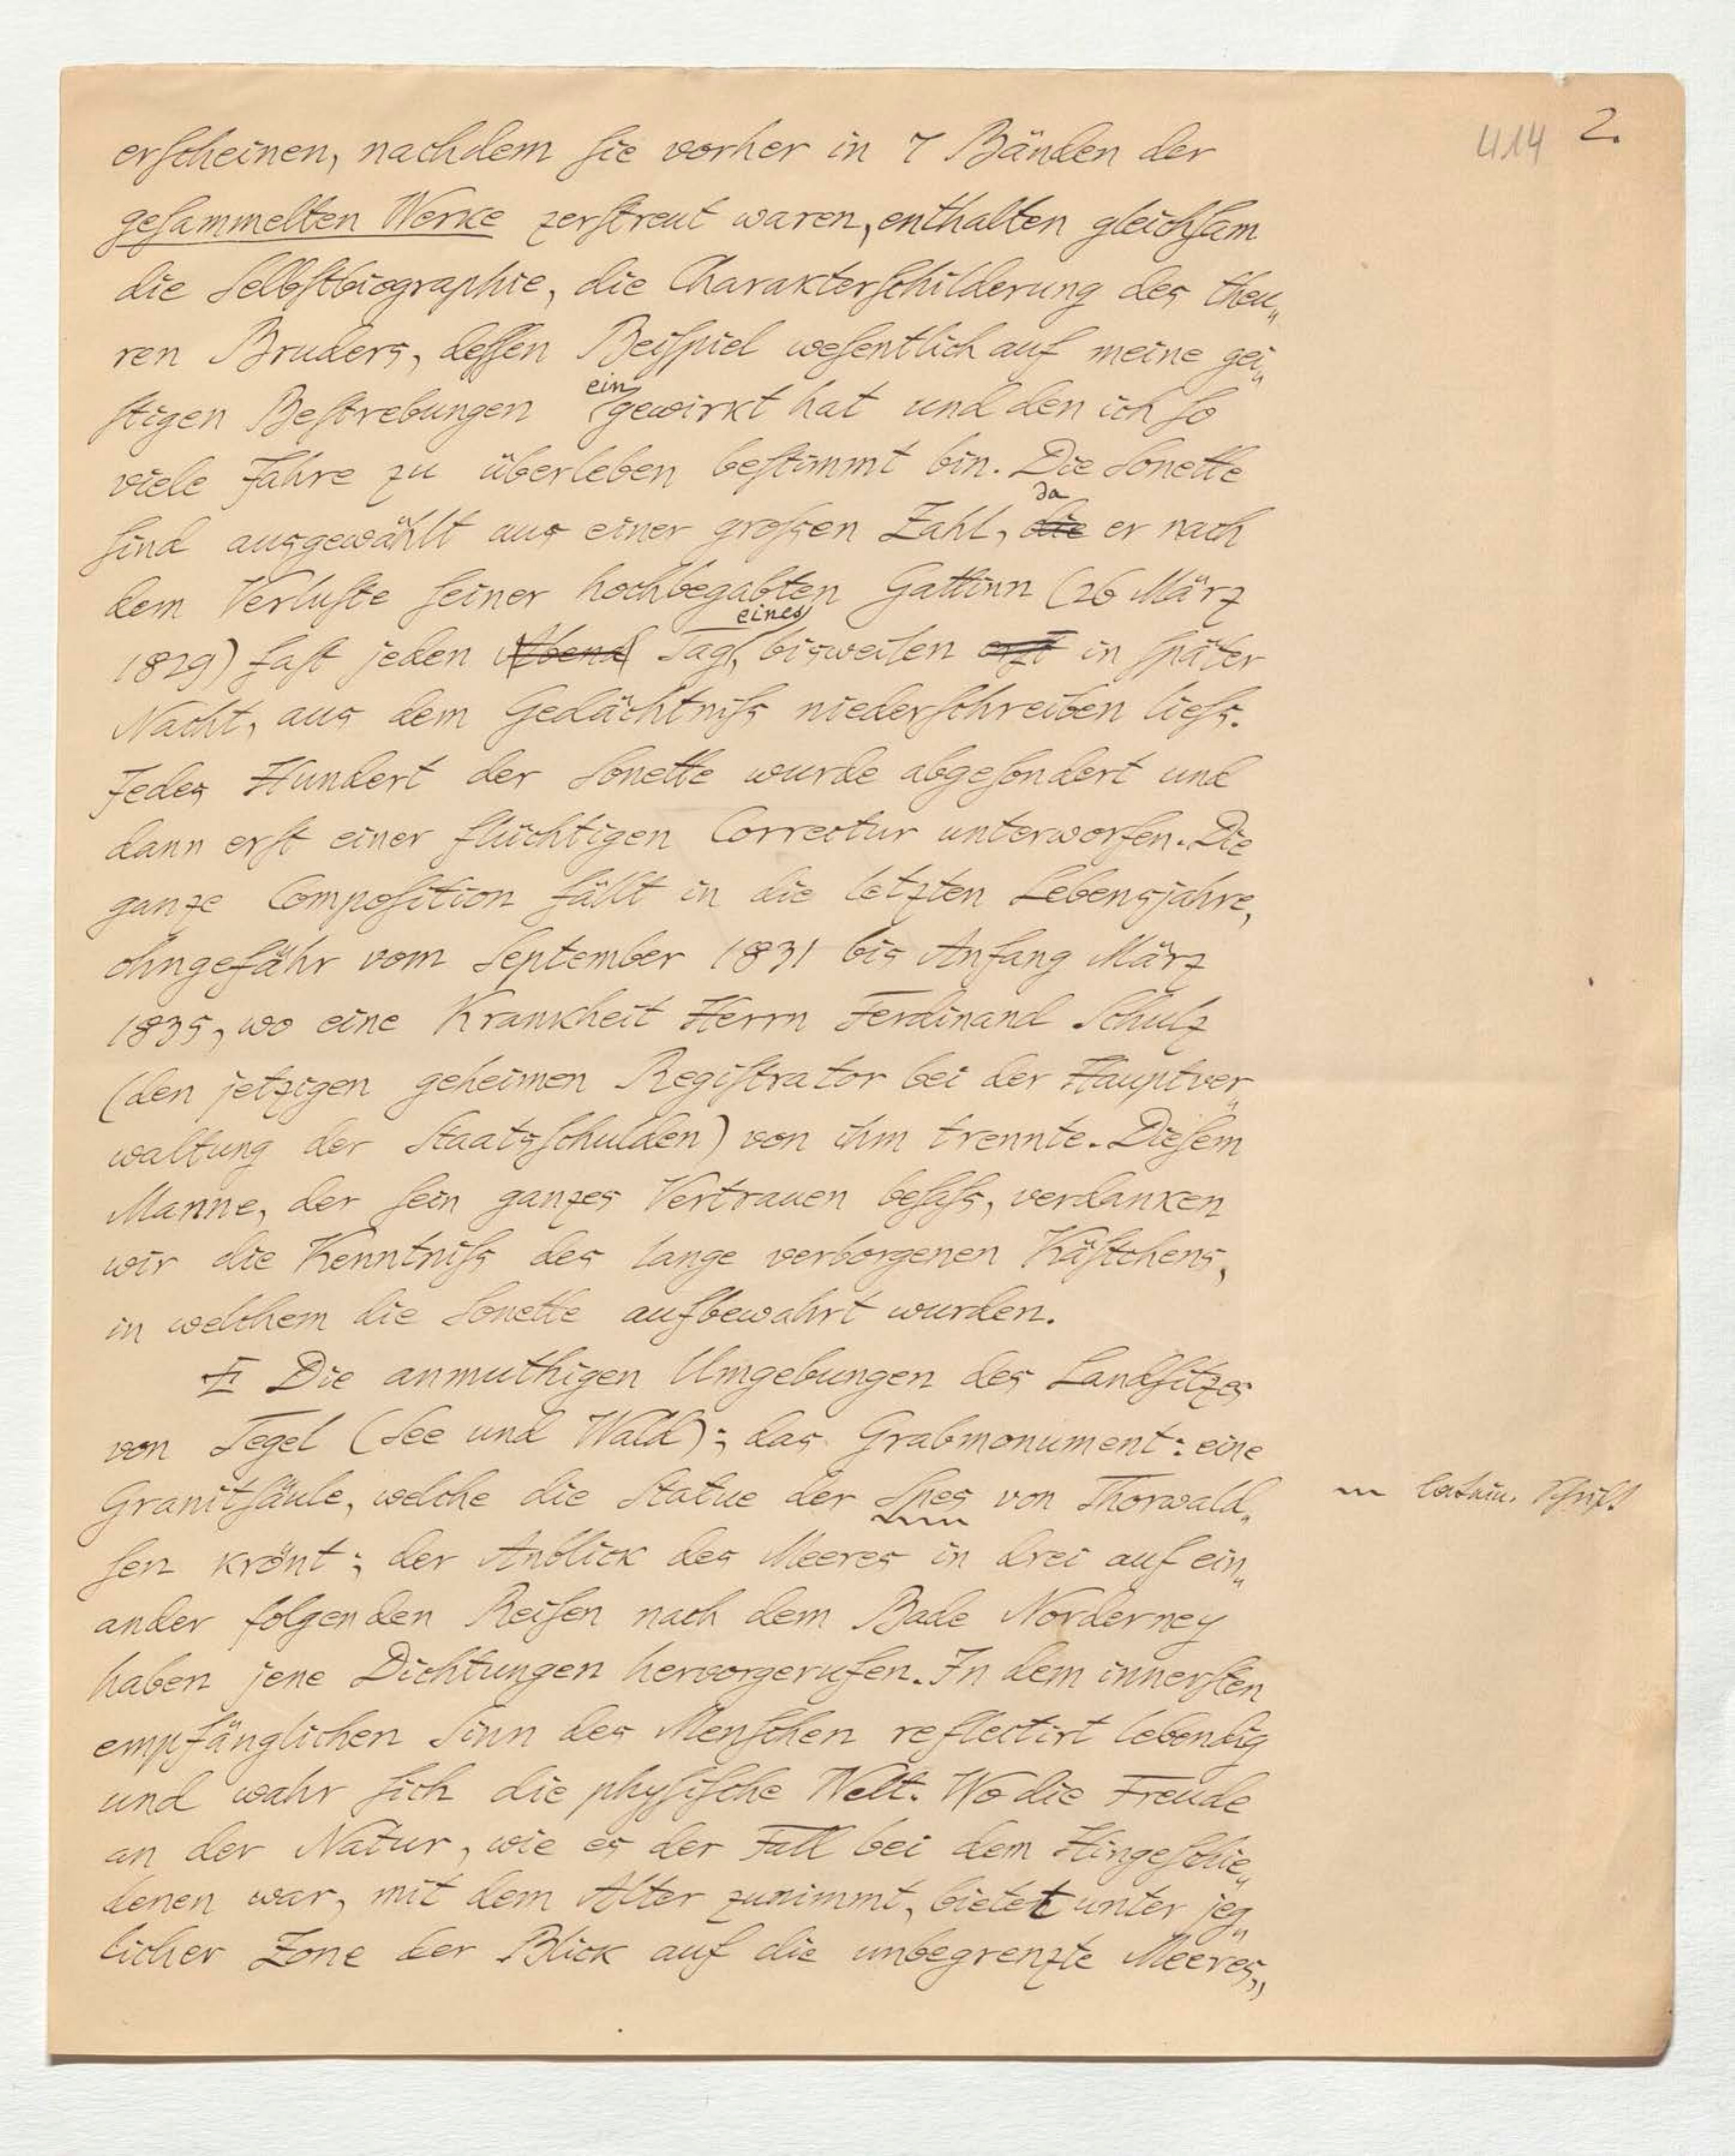 414 2.
erscheinen, nachdem sie vorher in 7 Bänden der
gesammelten Werke zerstreut waren, enthalten gleichsam
die Selbstbiographie, die Charakterschilderung des theu„
ren Bruders, dessen Beispiel wesentlich auf meine gei„
stigen Bestrebungen eingewirkt hat und den ich so
viele Jahre zu überleben bestimmt bin. Die Sonette
sind ausgewählt aus einer grossen Zahl, die da er nach
dem Verluste seiner hochbegabten Gattinn (26 März
1829) fast jeden Abend Tag, bisweilen erst eines in später
Nacht, aus dem Gedächtniss niederschreiben liess.
Jedes Hundert der Sonette wurde abgesondert und
dann erst einer flüchtigen Correctur unterworfen. Die
ganze Composition fällt in die letzten Lebensjahre,
ohngefähr vom September 1831 bis Anfang März
1835, wo eine Krankheit Herrn Ferdinand Schulz
(den jetzigen geheimen Registrator bei der Hauptver„
waltung der Staatsschulden) von ihm trennte. Diesem
Manne, der sein ganzes Vertrauen besass, verdanken
wir die Kenntniss des lange verborgenen Kästchens,
in welchem die Sonette aufbewahrt wurden.
Die anmuthigen Umgebungen des Landsitzes
von Tegel (See und Wald); das Grabmonument: eine
Granitsäule, welche die Statue der Spes von Thorwald„
sen krönt; der Anblick des Meeres in drei auf ein„
ander folgenden Reisen nach dem Bade Norderney
haben jene Dichtungen hervorgerufen. In dem innersten
empfänglichen Sinn des Menschen reflectirt lebendig
und wahr sich die physische Welt. Wo die Freude
an der Natur, wie es der Fall bei dem Hingeschie„
denen war, mit dem Alter zunimmt, bietet unter jeg„
licher Zone der Blick auf die unbegrenzte Meeres„
latein. Schrift